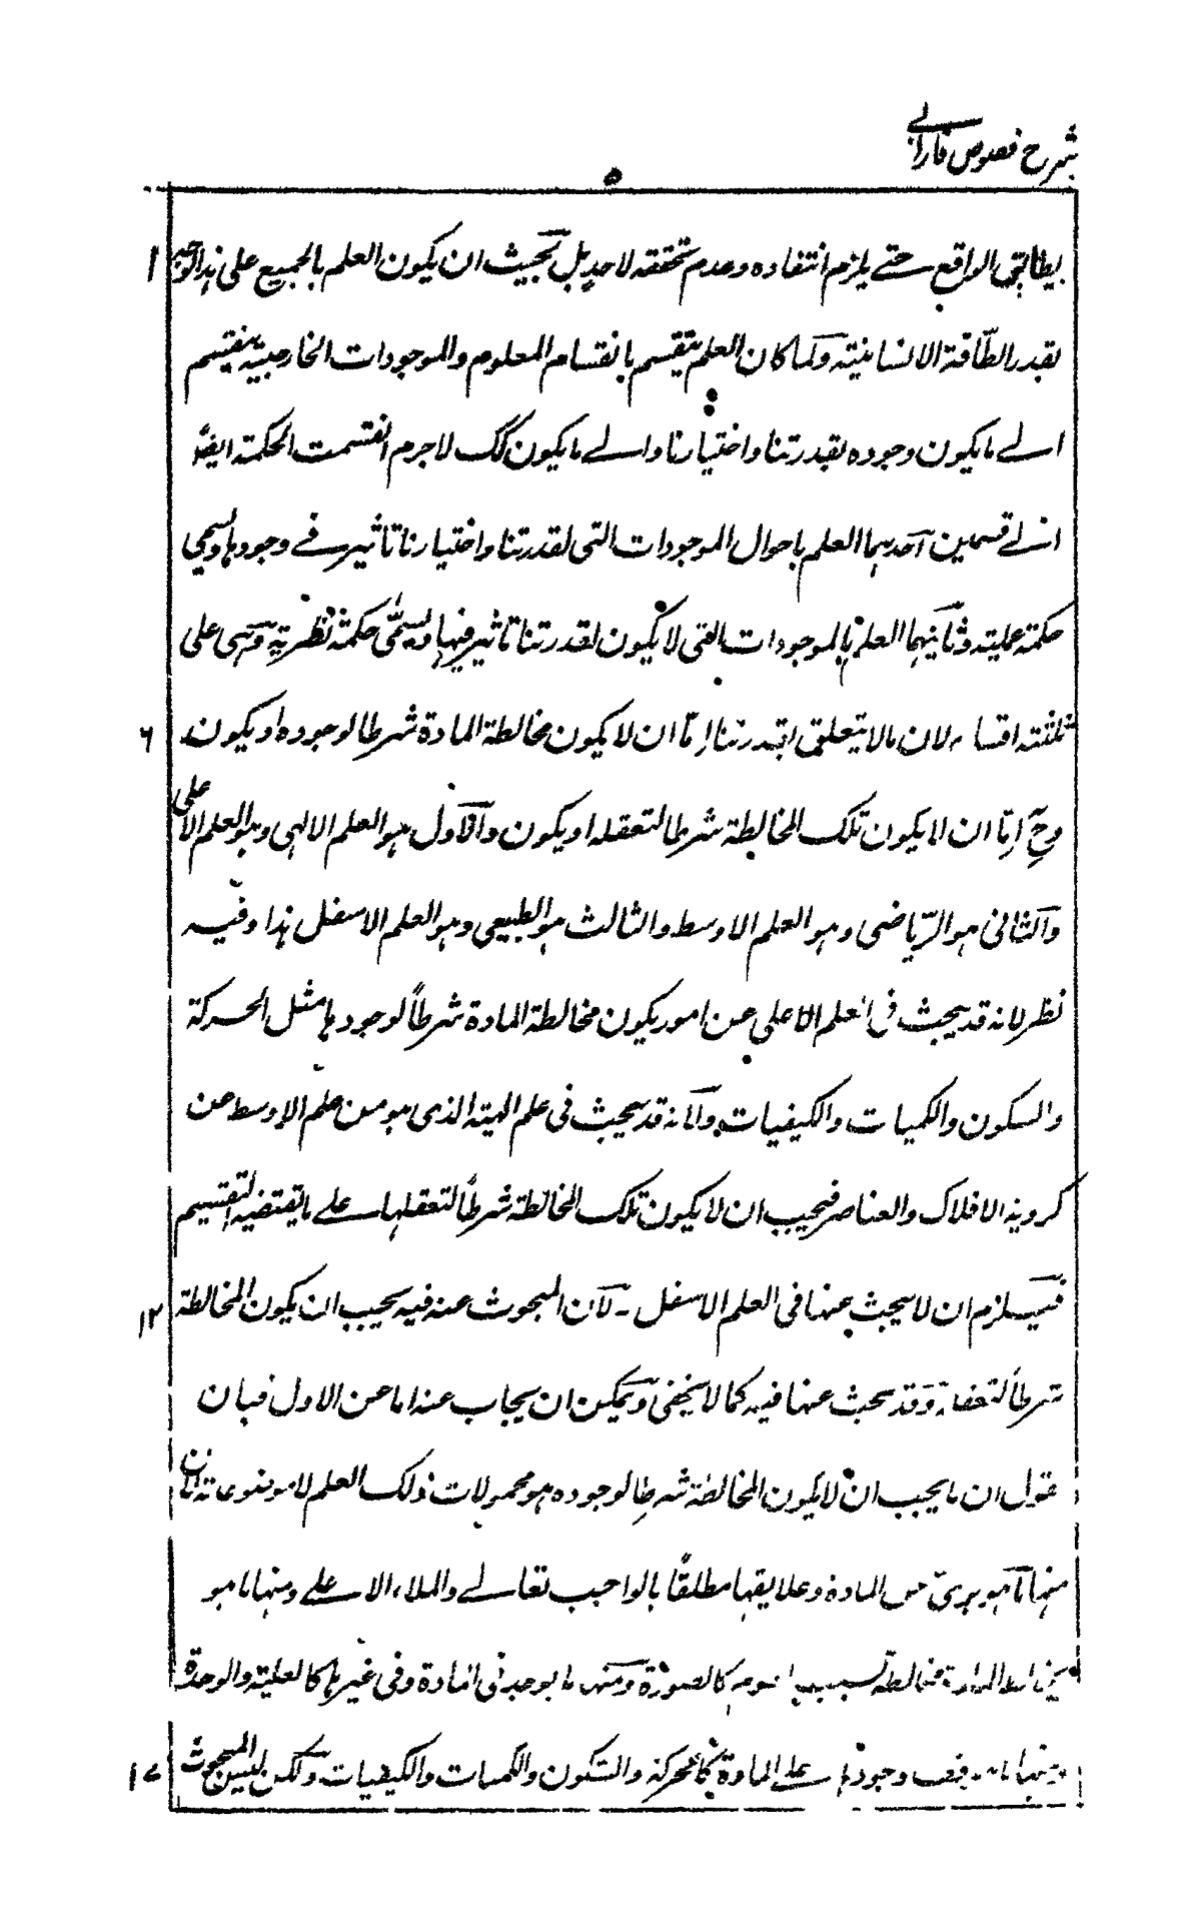 شرح فصوص فارابے
۵
يطابق الواقع حتے يلزم انتفاده وعدم تحققه لاحد بل بحيث ان يكون العلم بالجميع على هذا الوجه ١
بقدر الطاقة الانسانية ولما كان العلم ينقسم بانقسام المعلوم والموجودات الخارجية ينقسم
الے ما يكون وجوده بقدرتنا واختيارنا والے ما يكون كك لاجرم انقسمت الحكمة ايضًا
الے قسمين احدهما العلم باحوال الموجودات التى لقدرتنا واختيارنا تاثير فے وجودها ويسمى
حكمة عملية وثانيهما العلم بالموجودات التى لا يكون لقدرتنا تاثير فيها ويسمّٰى حكمة نظرية وهى على
ثلثة اقسام لان ما لا يتعلق بقدرتنا إمّا ان لا يكون مخالطة المادة شرطا لوجوده او يكون ٦
وحٓ إمّا ان لا يكون تلك المخالطة شرطا لتعقله او يكون والاول هو العلم الالهى وهو العلم الاعلى
والثانى هو الرّياضى وهو العلم الاوسط والثالث هو الطبيعى وهو العلم الاسفل هذا وفيه
نظر لانه قد يبحث فى العلم الاعلى عن امور يكون مخالطة المادة شرطاً لوجودها مثل الحركة
والسكون والكميات والكيفيات ولانه قد يبحث فى علم الهيئة الذى هو من علم الاوسط عن
كروية الافلاك والعناصر فيجب ان لا يكون تلك المخالطة شرطاً لتعقلها علے ما يقتضيه التقسيم
فيلزم ان لا يبحث عنها فى العلم الاسفل ـ لان المبحوث عنه فيه يجب ان يكون المخالطة ١٢
شرطاً لتعقله وقد يبحث عنها فيه كما لا يخفى ويمكن ان يجاب عنه اما عن الاول فبان
نقول ان ما يجب ان لا يكون المخالطة شرطا لوجوده هو محمولات ذلك العلم لا موضوعاته فان
منها ما هو برىّ عن المادة وعلايقها مطلقًا بالواجب تعالے والملاء الاعلے ومنها ما هو
يخالط المادة مخالطة السبب المقوم كالصورة ومنها ما يوجد فى المادة وفى غيرها كالعلية والوحدة
ومنها ما يتوقف وجودها علے المادة كالحركة والسكون والكميات والكيفيات ولكن ليس المبحوث ١٧